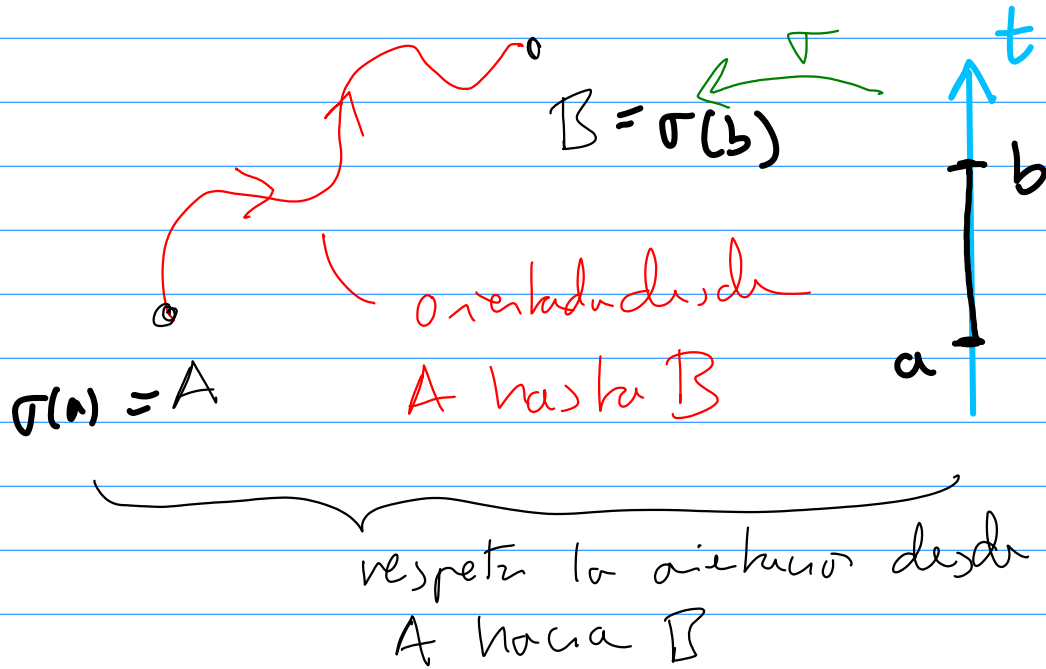 t
σ
B = σ(b)
b
orientada desde
a
A hasta B
σ(a) = A
respeta la orientación desde
A hacia B